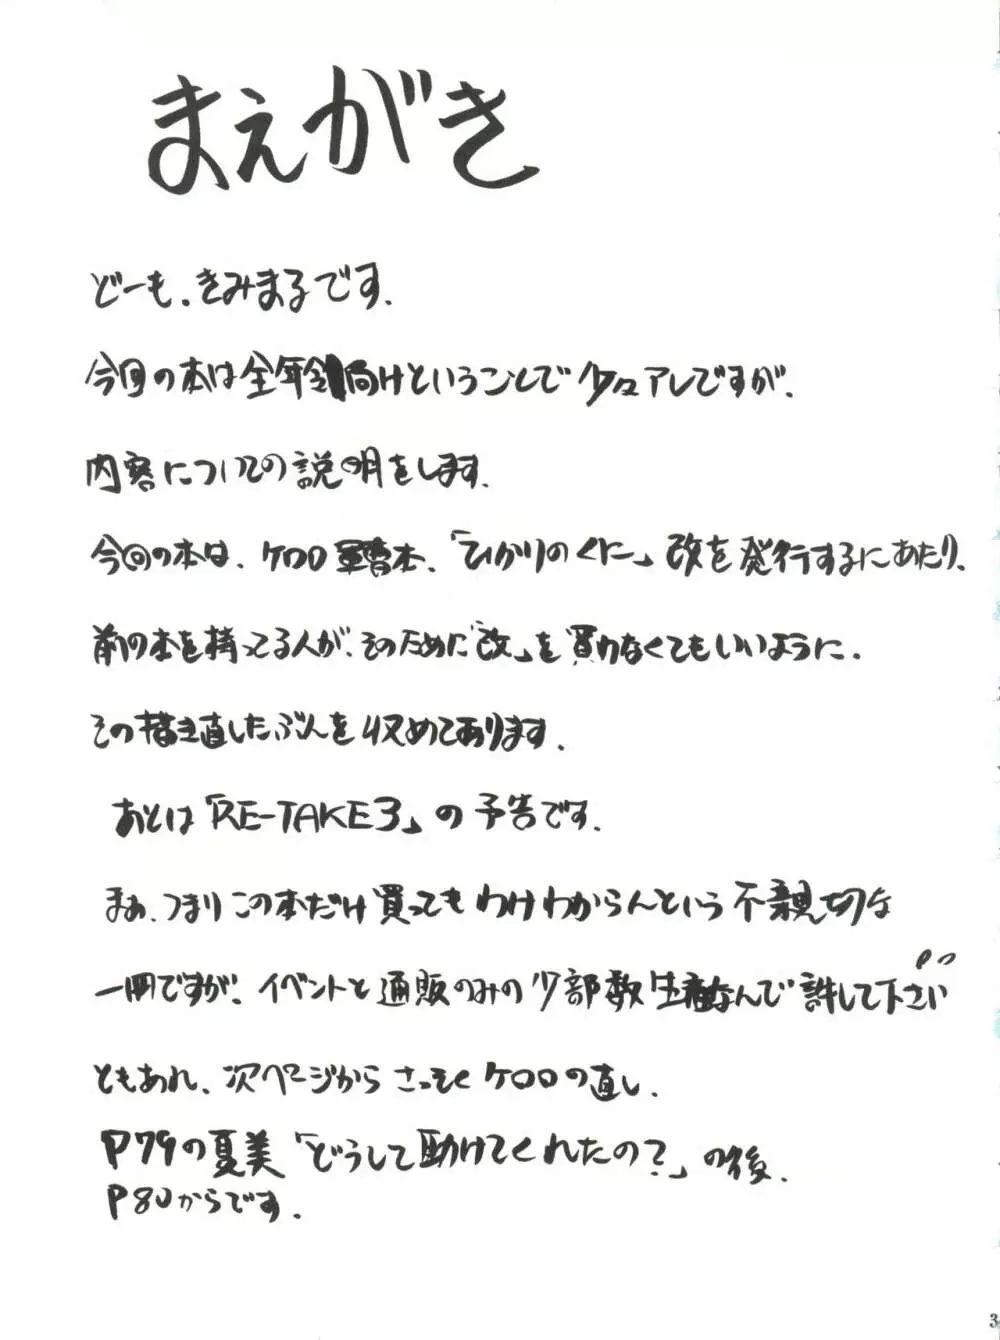 まえがき
どーも、きみまるです。
今回の本は全年令向けということで少々アレですが、
内容についての説明をします。
今回の本は、ケロロ軍曹本、「ひかりのくに」改を発行するにあたり、
前の本を持ってる人が、そのために「改」を買わなくてもいいように、
その描き直したぶんを収めてあります。
あとは「RE-TAKE3」の予告です。
まぁ、つまりこの本だけ買ってもわけわからんという不親切な
一冊ですが、イベントと通販のみの少部数生産なんで許して下さい
ともあれ、次ページからさっそくケロロの直し、
P79の夏美「どうして助けてくれたの?」の後、
P80からです。
3